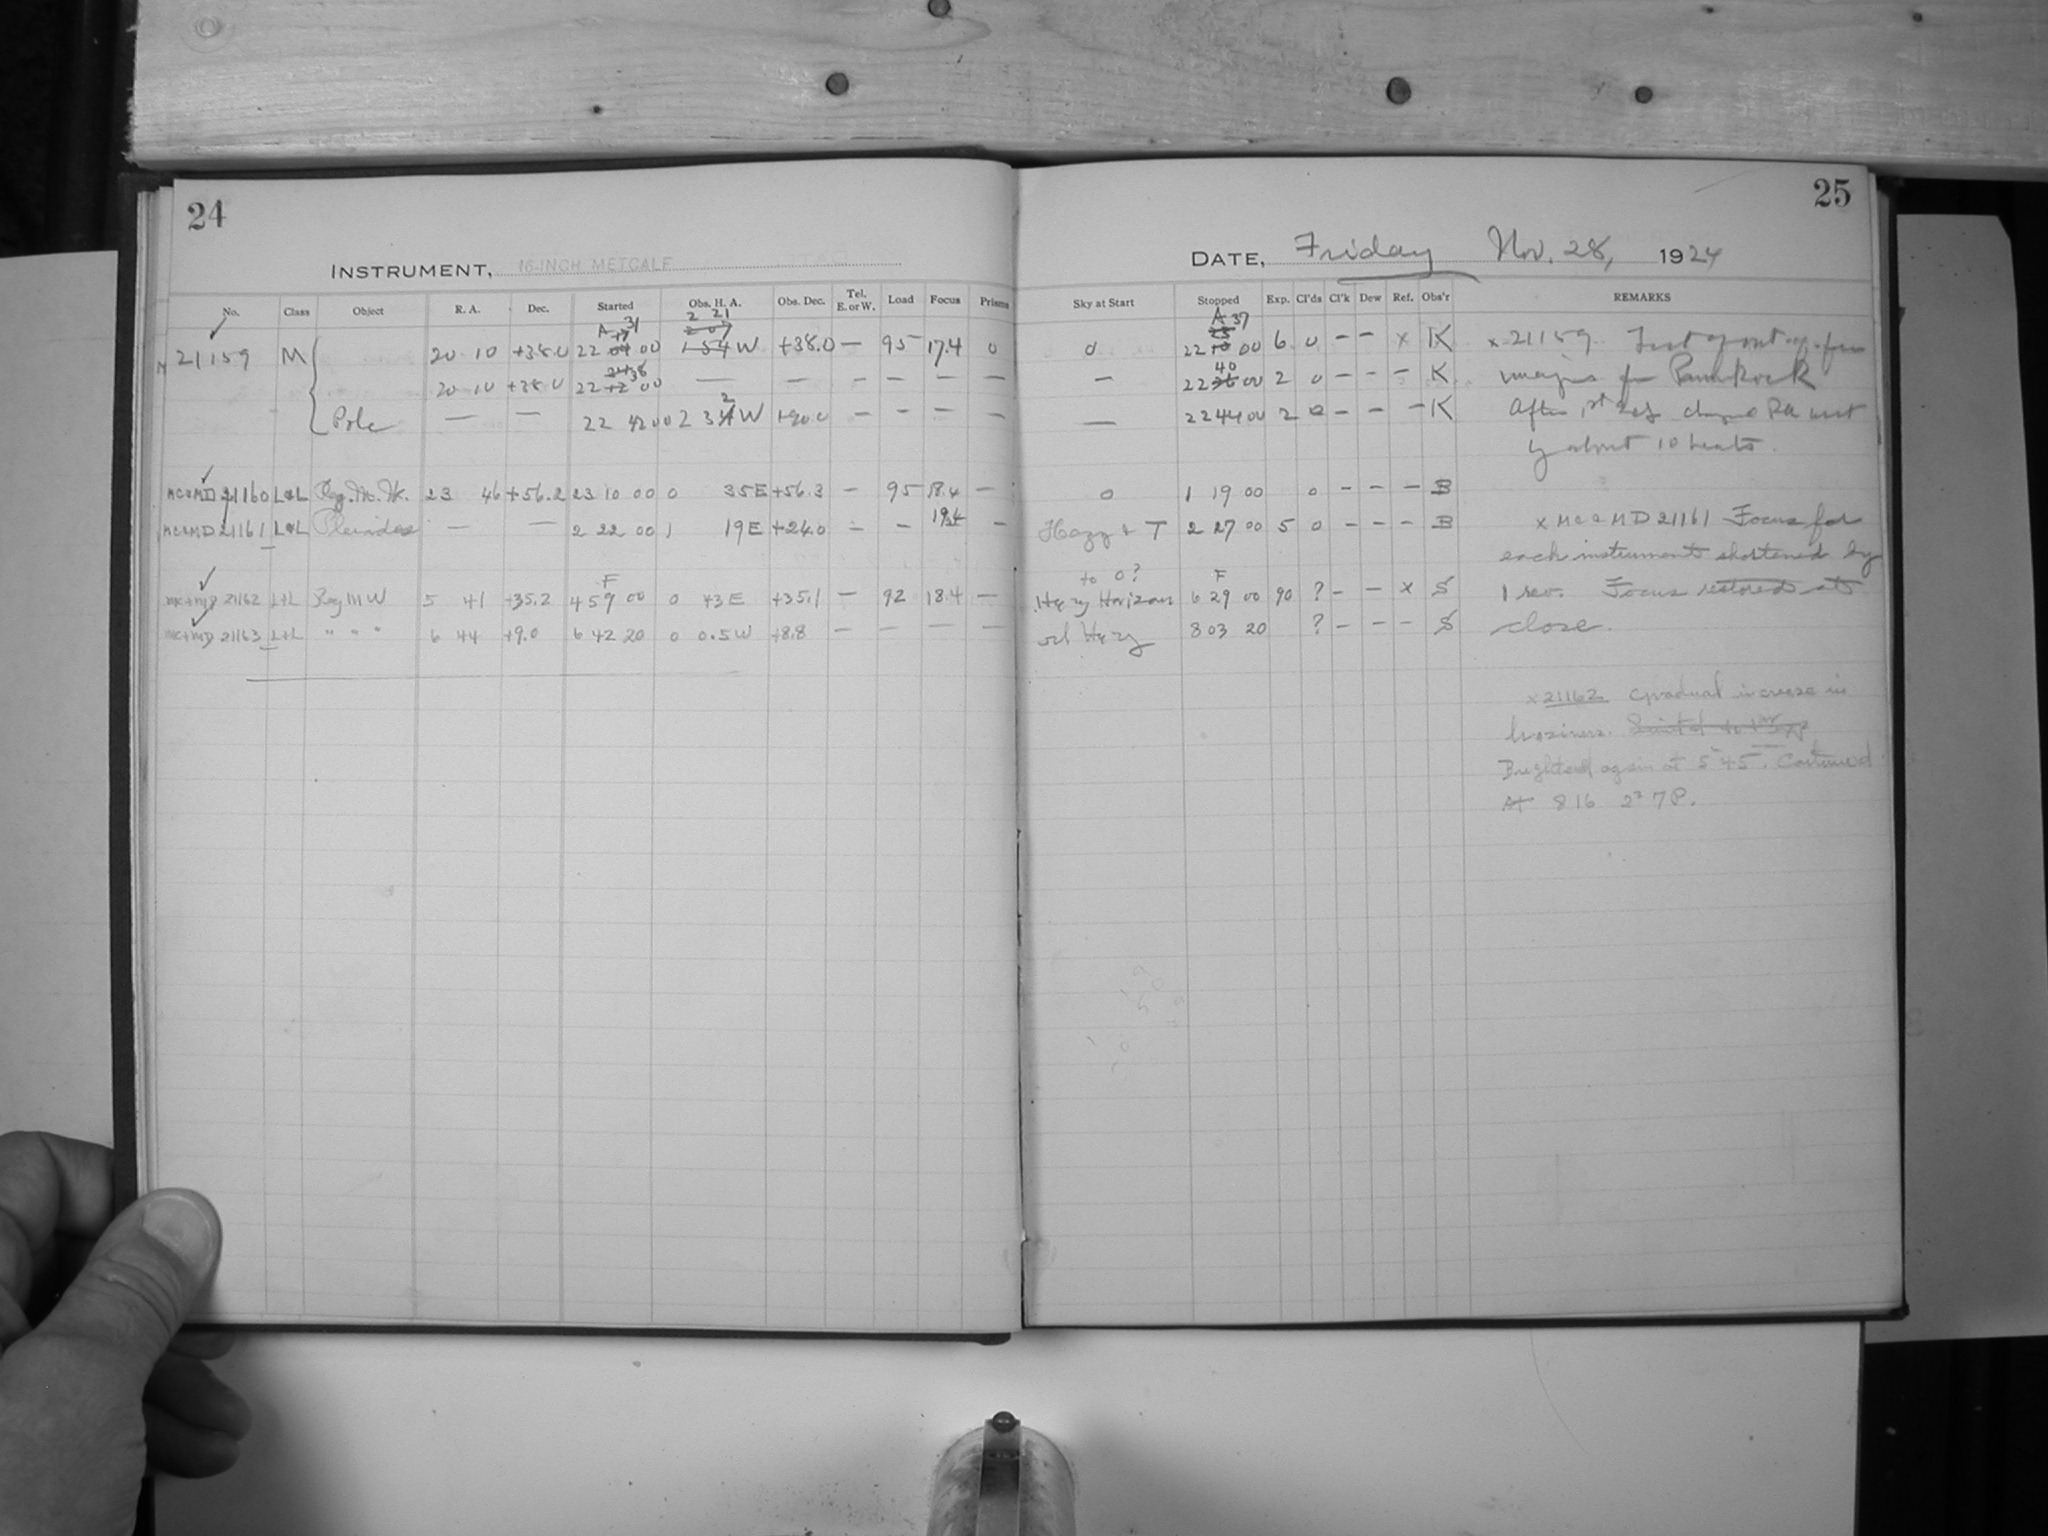 24
INSTRUMENT, 16-INCH METCALF
No. Class Object R. A. Dec. Started Obs. H. A. Obs. Dec. Tel. E. or W. Load Focus Prisms
A 31 2 21
17 2 07
21159 M 20 10 +38.0 22 04 00 1 54 W +38.0 — 95 17.4 0
24 38
20 10 +38.0 22 12 00 — — — — — —
Pole — — 22 42 00 2 32 W +90.0 — — — —
MC&MD 21160 L&L Reg. M.W. 23 46 +56.2 23 10 00 0 35E +56.3 — 95 18.4 —
MC&MD 21161 L&L Pleiades — — 2 22 00 1 19E +24.0 — — 19.4 —
F
MC+MD 21162 L+L Reg MW 5 41 +35.2 4 59 00 0 43E +35.1 — 92 18.4 —
MC+MD 21163 L+L " " " 6 44 +9.0 6 42 20 0 0.5W +8.8 — — — —
25
DATE, Friday Nov. 28, 1924
Sky at Start Stopped Exp. Cl'ds Cl'k Dew Ref. Obs'r REMARKS
A 37
23
0 22 10 00 6 0 — — x K x 21159. Test
40
— 22 26 00 2 0 — — — K images for
— 22 44 00 2 0 — — — K After 1st changed RA west
by about 10 beats.
0 1 19 00 0 — — — B
Hazy & T 2 27 00 5 0 — — — B x MC & MD 21161 Focus for
each instrument shortened by
to 0? F
Hazy Horizon 6 29 00 90 ? — — x S 1 rev. Focus restored at
Hazy 8 03 20 ? — — — S close.
x 21162 Gradual increase in
haziness.
again at 5 45. Continued
At 8 16